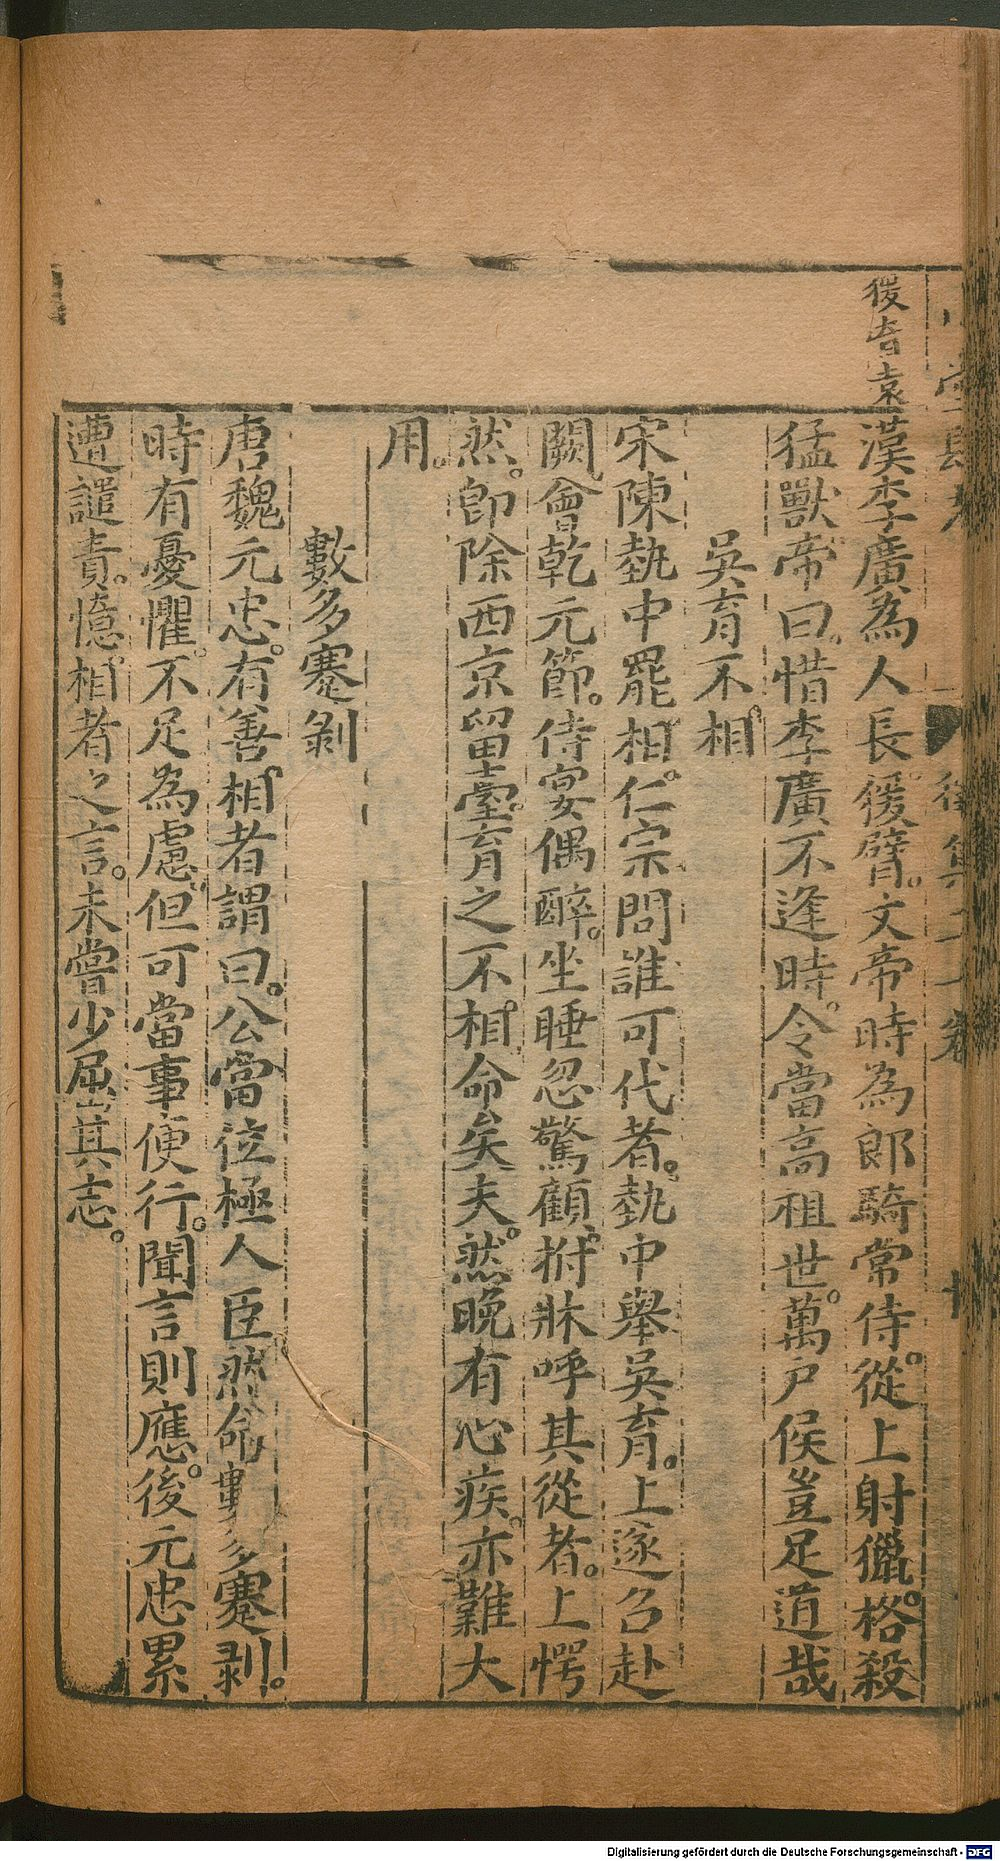 猨音袁
漢李廣為人長猨臂。文帝時為郎騎常侍。從上射獵。格殺
猛獸。帝曰。惜李廣不逢時。令當高祖世。萬戶侯豈足道哉
吳育不相
宋陳執中罷相。仁宗問誰可代者。執中舉吳育。上遂召赴
闕。會乾元節。侍宴偶醉。坐睡忽驚顧。拊牀呼其從者。上愕
然。卽除西京留臺。育之不相。命矣夫。然晚有心疾。亦難大
用。
數多蹇剝
唐魏元忠。有善相者謂曰。公當位極人臣。然命數多蹇剝。
時有憂懼。不足為慮。但可當事便行。聞言則應。後元忠累
遭譴責。憶相者之言。未嘗少屈其志。
Digitalisierung gefördert durch die Deutsche Forschungsgemeinschaft - DFG